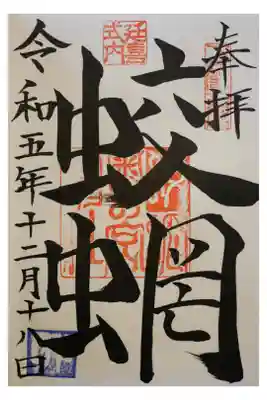 奉拝
延喜
式内
蛟蝄
令和五年十二月十八日